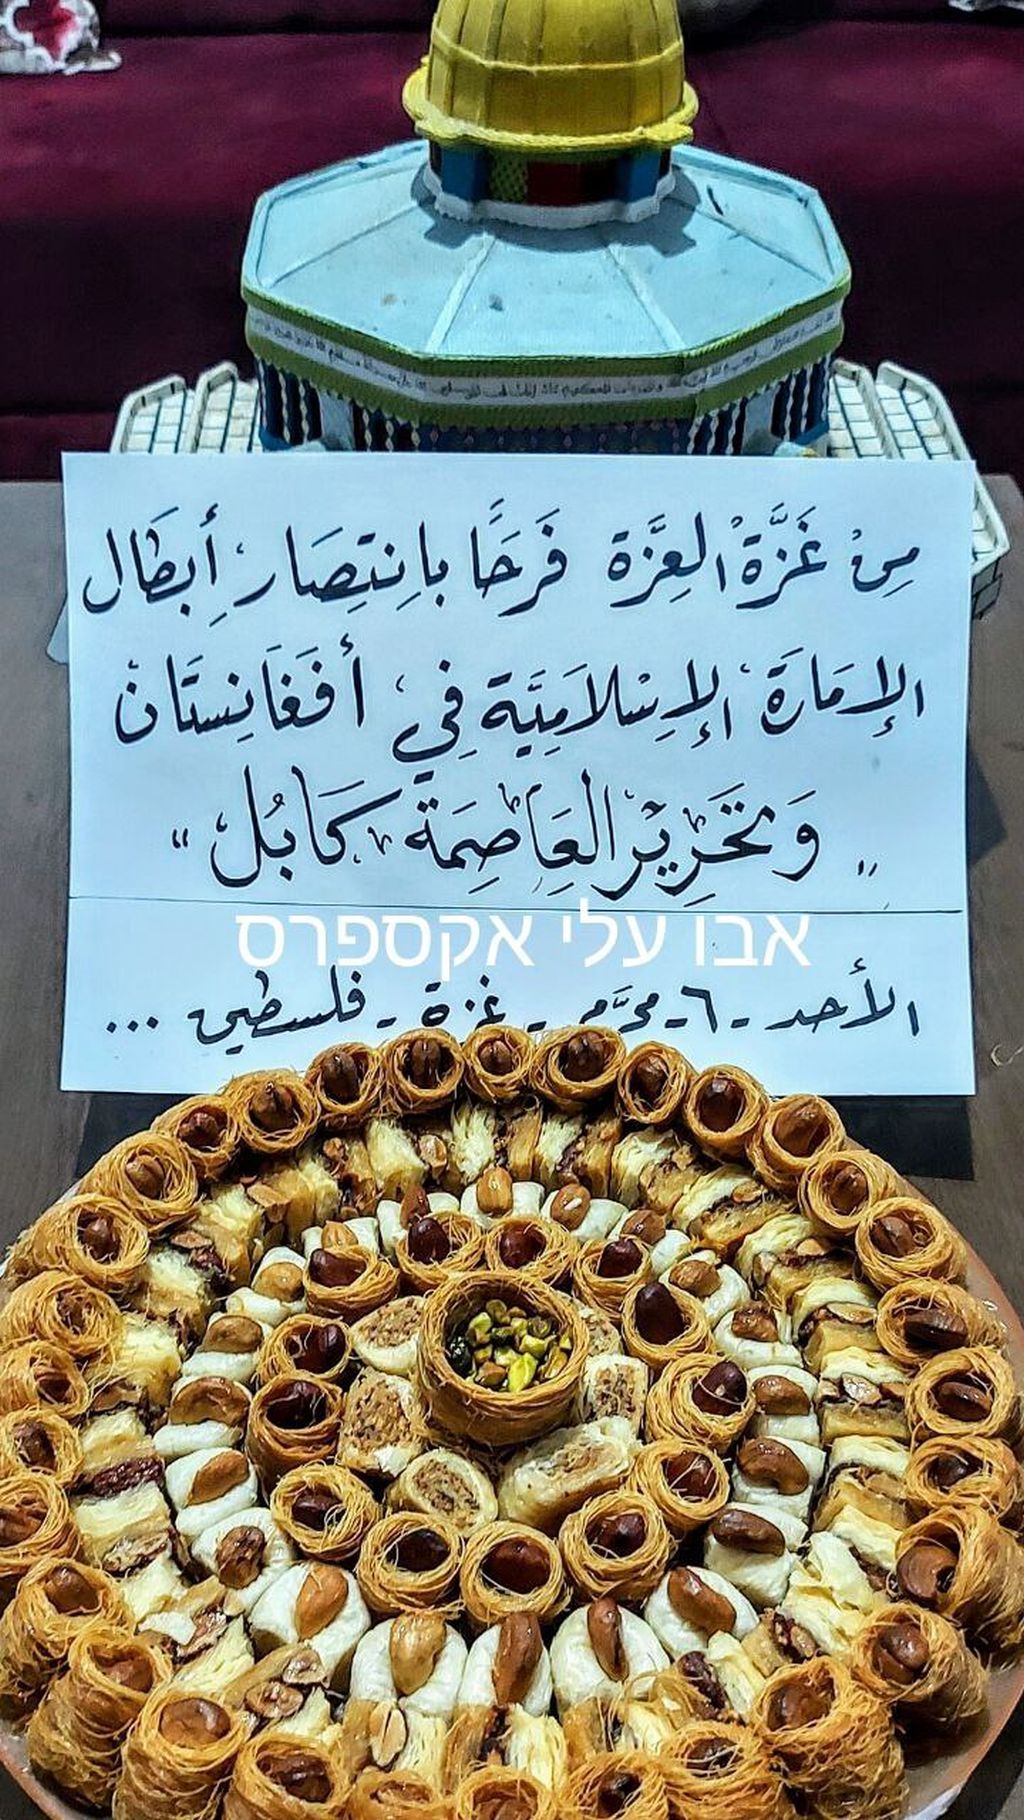 مِنْ غَزَّةْ العِزَّة فَرَحًا بِانتِصَار أَبطَال
الإمَارَة الإسْلَامِيَّة فِي أفغَانِستَان
" وَتَحْرِيْر العَاصِمَة كَابُل "
אבו עלי אקספרס
الأحد - ٦ - محرَّم - غزة - فلسطين ...